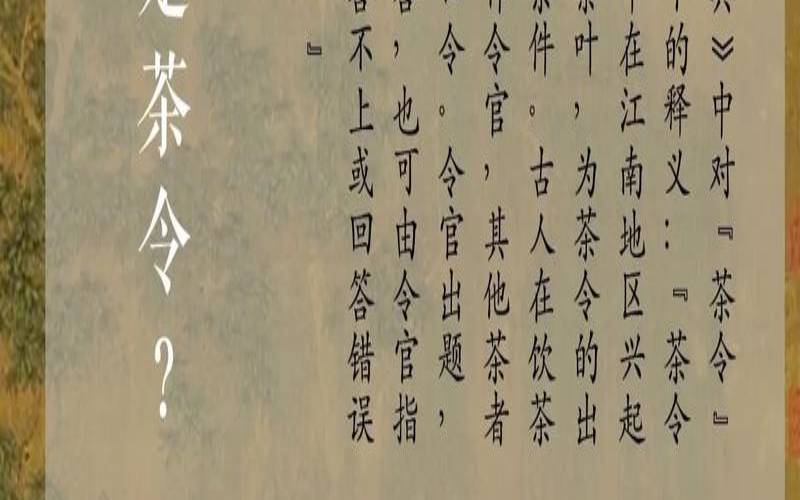 》中对『茶令』
的释义：『茶令
在江南地区兴起
叶，为茶令的出
件。古人在饮茶
令官，其他茶者
令。令官出题，
，也可由令官指
不上或回答错误
』
是茶令？